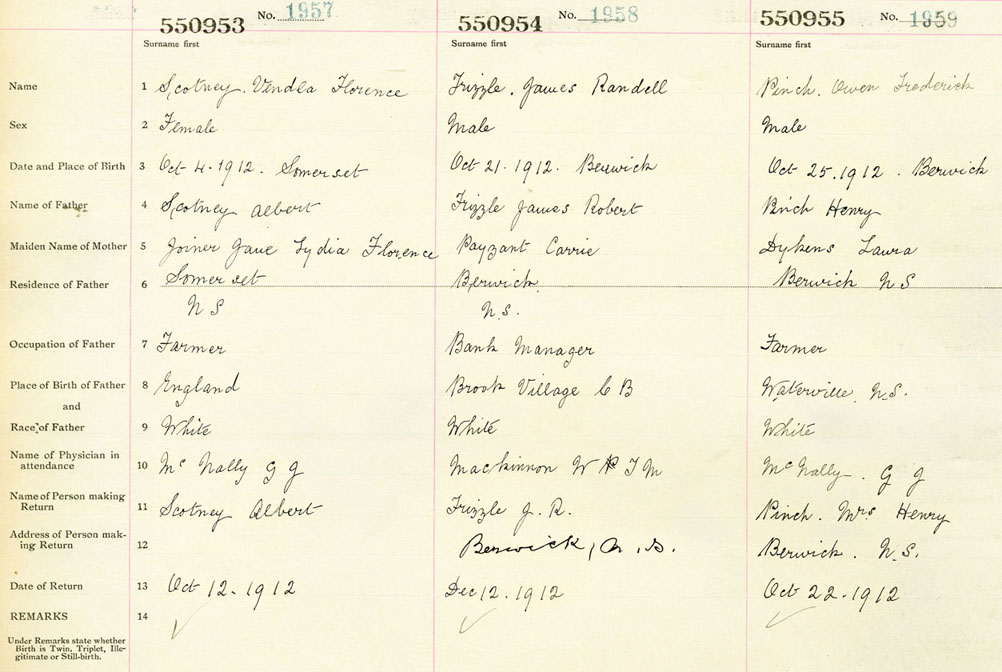 550953 No. 1957 550954 No. 1958 550955 No. 1959
Surname first Surname first Surname first
Name 1 Scotney. Vendla Florence Frizzle. James Randell Pinch. Owen Frederick
Sex 2 Female Male Male
Date and Place of Birth 3 Oct 4.1912. Somerset Oct 21.1912. Berwick Oct 25.1912. Berwick
Name of Father 4 Scotney Albert Frizzle James Robert Pinch Henry
Maiden Name of Mother 5 Joiner Jane Lydia Florence Payzant Carrie Dykens Laura
Residence of Father 6 Somerset Berwick Berwick N S
N S N.S.
Occupation of Father 7 Farmer Bank Manager Farmer
Place of Birth of Father 8 England Brook Village C B Waterville N.S.
and
Race of Father 9 White White White
Name of Physician in
attendance 10 Mc Nally G J Mackinnon W F M McNally. G J
Name of Person making
Return 11 Scotney Albert Frizzle J. R. Pinch. Mrs Henry
Address of Person mak-
ing Return 12 Berwick, N.S. Berwick. N.S.
Date of Return 13 Oct 12.1912 Dec 12.1912 Oct 22.1912
REMARKS 14
Under Remarks state whether
Birth is Twin, Triplet, Ille-
gitimate or Still-birth.